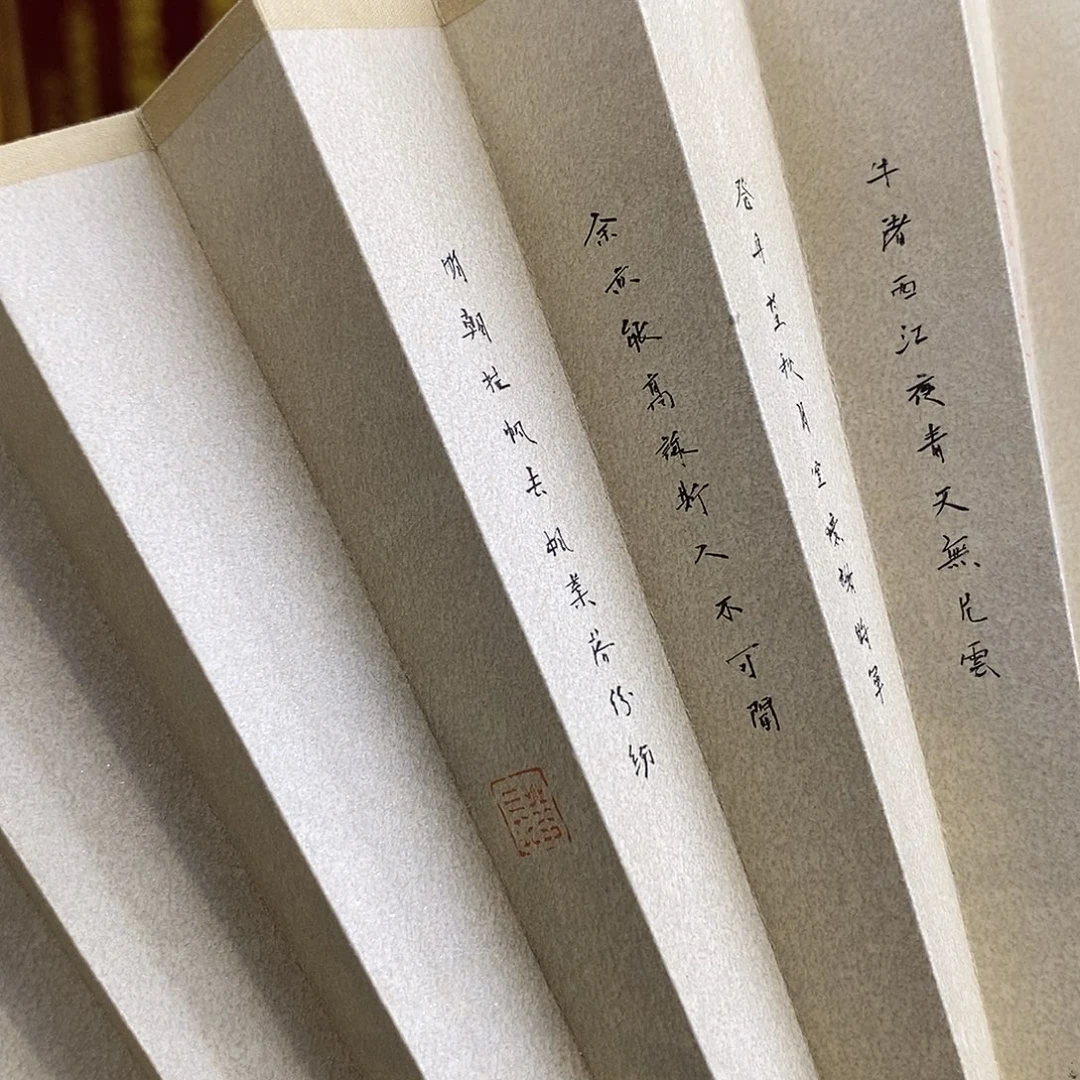 牛渚西江夜青天無片雲
登舟望秋月空憶謝將軍
余亦能高詠斯人不可聞
明朝挂帆去楓葉落紛紛